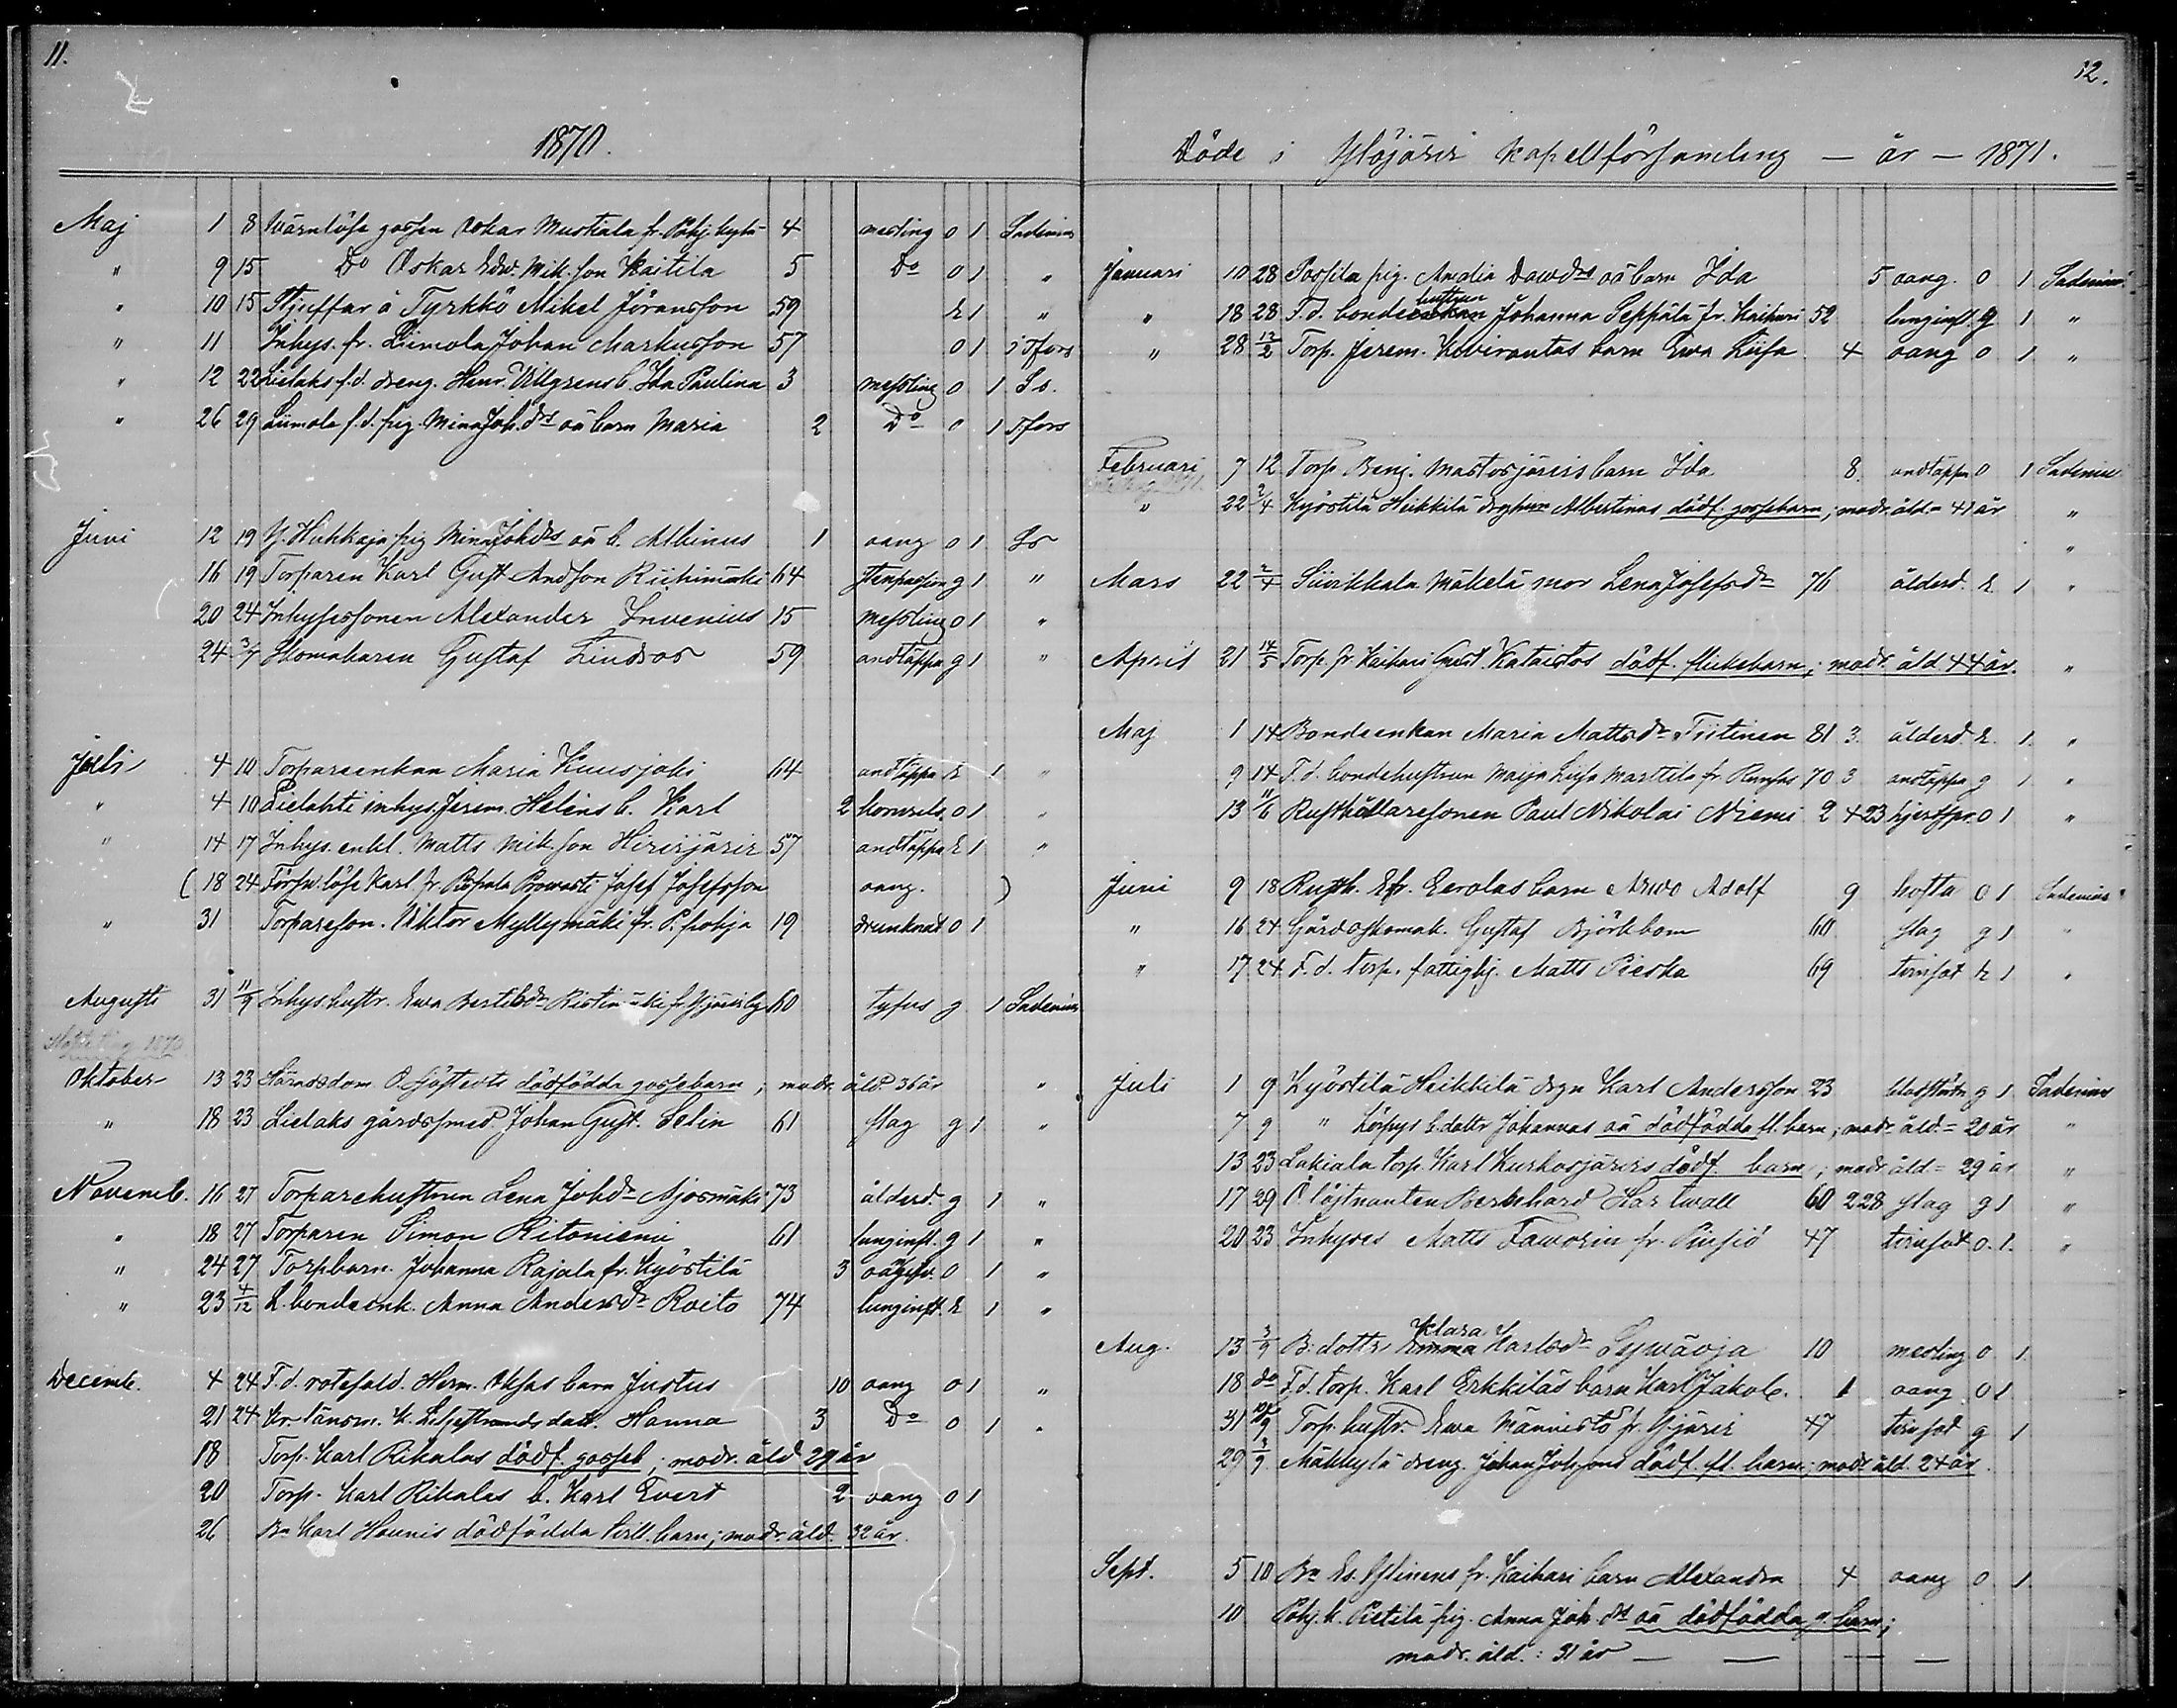 11.
1870.
Maj 1 8 Wärnlöse gossen Oskar Mustiala fr. Pohj. kylä 4 mesling 0 1 Sadenius
" 9 15 Do Oskar Edw. Mik. son Kaitila 5 Do 0 1 "
" 10 15 Mikel Jöransson 59 E 1 "
" 11 Inhys. fr. Liimola Johan Markusson 57 0 1 i Tfors
" 12 22 Lielaks f.d. dreng. Henr. Ullgrens b. Ida Paulina 3 messling 0 1 So.
" 26 29 Liimola f.d. pig. Mina Joh.drs oä barn Maria 2 Do 0 1 Tfors
Juni 12 19 Y. Huhkaja pig Mina Johdrs oä b. Albinus 1 oang 0 1 So
16 19 Torparen Karl Gust Andsson Riihimäki 64 stenpassion g 1 "
20 24 Inhysessonen Alexander Invenius 15 messling 0 1 "
24 3/7 Skomakaren Gustaf Lindros 59 andtäppa g 1 "
Juli 4 10 Torpareenkan Maria Kuusjoki 64 andtäppa E 1 "
" 4 10 Lielahti inhys. Jerem. Helins b. Karl 2 0 1 "
" 14 17 Inhys. enkl. Matts Mik. son Hirvijärvi 57 andtäppa E 1 "
( 18 24 Försw. löse Karl fr Prowasti Josef Josefsson oang. )
" 31 Torpareson. Viktor Myllymäki fr. P. pohja 19 drunknat 0 1
Augusti 31 11/9 Inhys hustr. Ewa Bertilsdr Ristimäki fr. Yjärvi by 60 tyfus g 1 Sadenius
1870
Oktober 13 23 Häradsdom. O. Sjöstedts dödfödda gossebarn; modr. åld. 36 år "
" 18 23 Lielaks gårdssmed Johan Gust. Selin 61 slag g 1 "
Novemb. 16 27 Torparehustrun Lena Johdr Ajosmäki 73 ålderd. g 1 "
" 18 27 Torparen Simon Ritoniemi 61 lunginfl. g 1 "
" 24 27 Torpbarn Johanna Rajala fr. Kyöstilä 3 0 1 "
" 23 4/12 L. bondeenk. Anna Andersdr Roito 74 lunginfl. E 1 "
Decemb. 4 24 F.d. rotesold. Herm. barn Justus 10 oang 0 1 "
21 24 Kr. länsm. K. Liljestrands dott. Hanna 3 Do 0 1 "
18 Torp. Karl Rikalas dödf. gosseb; modr. åld 29 år
20 Torp. Karl Rikalas b. Karl Evert 2 oang 0 1
26 Bn Karl Haunis dödfödda barn; modr. åld. 32 år.
12.
Döde i Ylöjärvi kapellförsamling — år — 1871.
Januari 10 28 Pospila pig. Amalia Dawdrs oä barn Ida 5 oang. 0 1 Sadenius
" 18 28 F.d. bonde hustrun Johanna Seppälä fr. Kaihari 52 lunginfl. g 1 "
" 28 12/2 Torp. Jerem. Kivirantas barn Ewa Liisa 4 oang 0 1 "
Februari 7 12 Torp. Benj. Mastosjärvis barn Ida 8 andtäppa 0 1 Sadenius
" 22 2/4 Kyöstilä Heikkilä Albertinas dödf. gossebarn; modr. åld= 41 år "
"
Mars 22 2/4 Siivikkala Mäkelä mor Lena Josefsdr 76 ålderd. E 1 "
April 21 14/5 Torp. fr Kaihari Gust. Kataistos dödf. flickebarn; modr. åld. 44 år. "
Maj 1 14 Bondeenkan Maria Mattsdr Tiitinen 81 3 ålderd. E. 1. "
9 14 F.d. bondehustrun Maija Liisa Marttila fr. 70 3 andtäppa g 1 "
13 11/6 Rusthållaresonen Paul Nikolai Niemi 2 4 23 0 1 "
Juni 9 18 Rusth. Efr. Eerolas barn Arvo Adolf 9 hosta 0 1 Sadenius
" 16 24 Gårdsskomak. Gustaf Björkbom 60 slag g 1 "
" 17 24 F.d. torp. fattighj. Matts Pieska 69 tvinsot E 1 "
Juli 1 9 Kyöstilä Heikkilä drgn Karl Andersson 23 blodstörtn g 1 Sadenius
7 9 " Johannas oä dödfödda fl. barn; modr. åld.= 20 år "
13 23 Lakiala torp. Karl Kurkosjärvis dödf. barn; modr. åld= 29 år "
17 29 Ö. löjtnanten Bernhard Hartwall 60 2 28 slag g 1 "
20 23 Inhyses Matts Faworin fr. Pinsiö 47 tvinsot 0. 1. "
Aug. 13 3/9 B. dottr Klara Karlsdr Sywäoja 10 mesling 0 1
18 do F.d. torp. Karl Erkkiläs barn Karl Jakob. 1 oang 0 1
31 10/9 Torp. hustr. Ewa Männistö fr. Yjärvi 47 tvinsot g 1
29 3/9 Mäkkylä dreng. Johan Johssons dödf. fl. barn; modr. åld. 24 år.
Sept. 5 10 Bn Es. Ylinens fr. Kaihari barn Alexandra 4 oang 0 1
10 Pohj. k. Pietilä pig. Anna Joh. drs oä dödfödda g. barn;
modr. åld.: 31 år — — — —